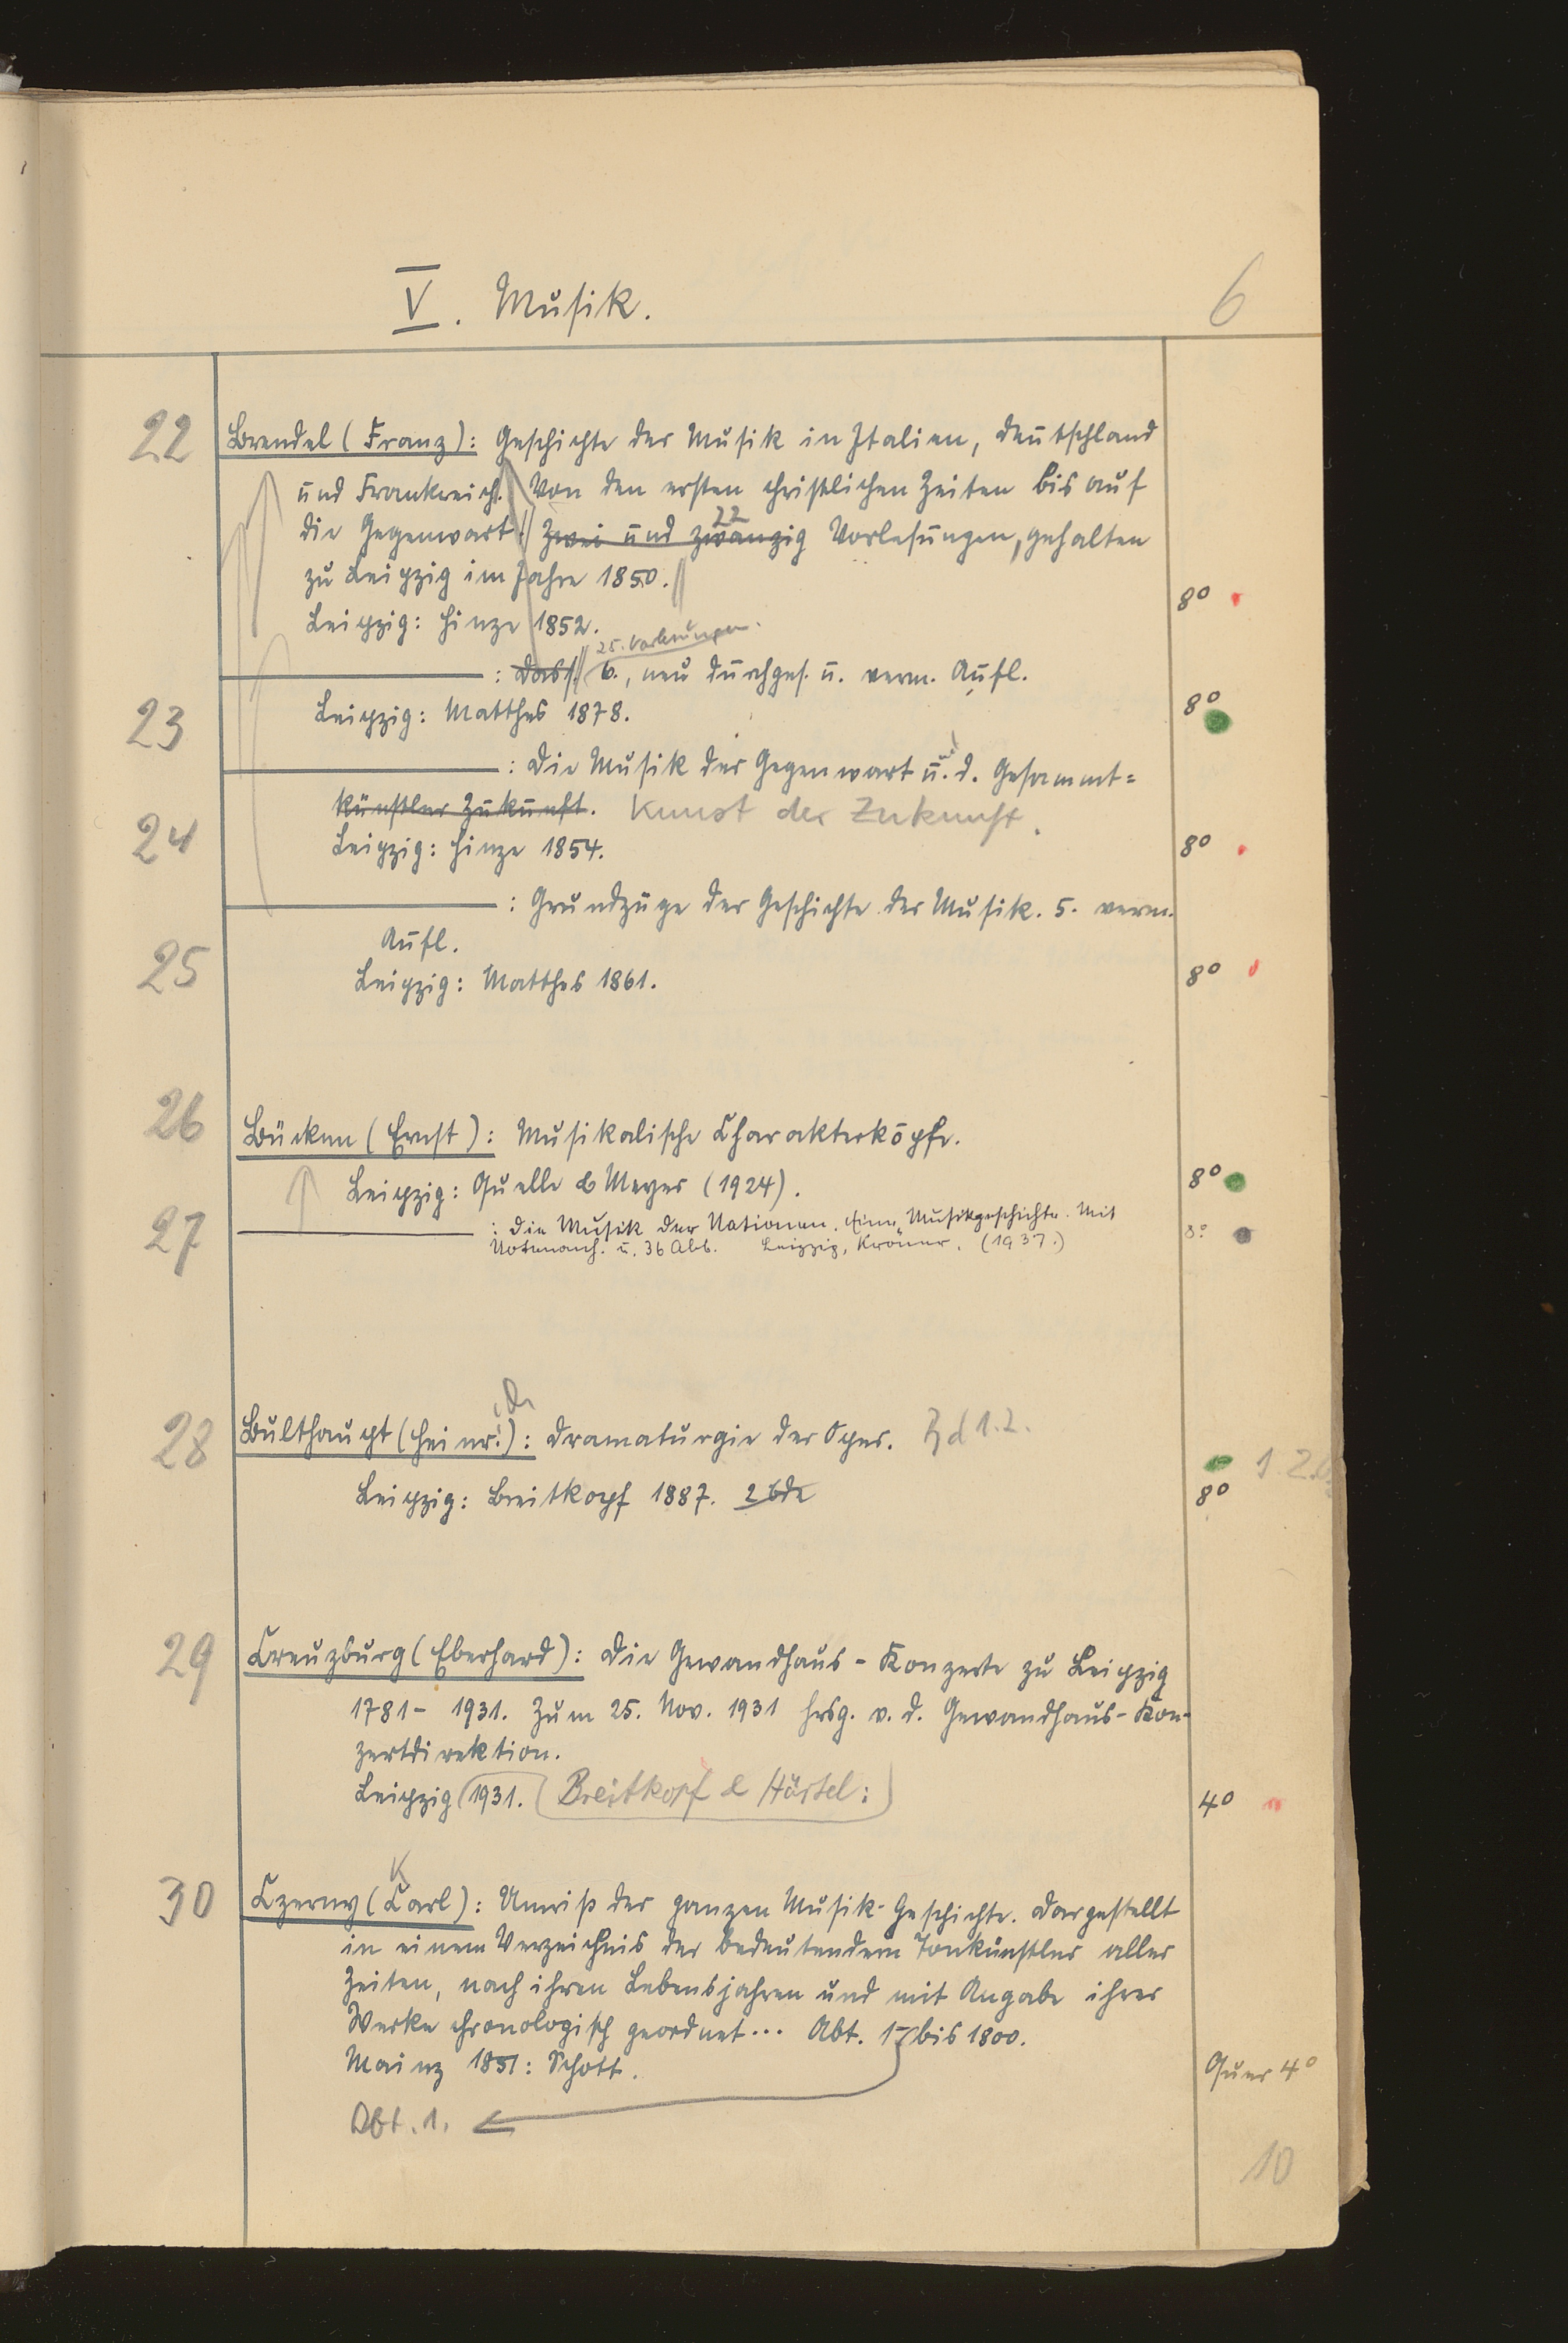 V. Musik.
6
22 Brendel (Franz): Geschichte der Musik in Italien, Deutschland
und Frankreich. Von den ersten christlichen Zeiten bis auf
die Gegenwart. Zwei und zwanzig 22 Vorlesungen, gehalten
zu Leipzig im Jahre 1850.
Leipzig: Hinze 1852. 8°
25. Vorlesungen.
: Dass. 6., neu durchges. u. verm. Aufl.
23 Leipzig: Matthes 1878. 8°
: Die Musik der Gegenwart u. d. Gesammt=
künstler Zukunft. Kunst der Zukunft.
24 Leipzig: Hinze 1854. 8°
: Grundzüge der Geschichte der Musik. 5. verm.
Aufl.
25 Leipzig: Matthes 1861. 8°
26 Bücken (Ernst): Musikalische Charakterköpfe.
Leipzig: Quelle & Meyer (1924). 8°
27 : Die Musik der Nationen. Eine Musikgeschichte. Mit 8°
Notenansch. u. 36 Abb. Leipzig, Kröner. (1937.)
28 Bulthaupt (Heinr.): Dramaturgie der Oper. Bd 1.2.
1.2.
Leipzig: Breitkopf 1887. 2 Bde 8°
29 Creuzburg (Eberhard): Die Gewandhaus-Konzerte zu Leipzig
1781- 1931. Zum 25. Nov. 1931 hrsg. v. d. Gewandhaus-Kon-
zertdirektion.
Leipzig 1931. Breitkopf & Härtel: 4°
K
30 Czerny (Carl): Umriß der ganzen Musik-Geschichte. Dargestellt
in einem Verzeichnis der bedeutendern Tonkünstler aller
Zeiten, nach ihren Lebensjahren und mit Angabe ihrer
Werke chronologisch geordnet... Abt. 1 bis 1800.
Mainz 1851: Schott. Quer 4°
Abt. 1.
10